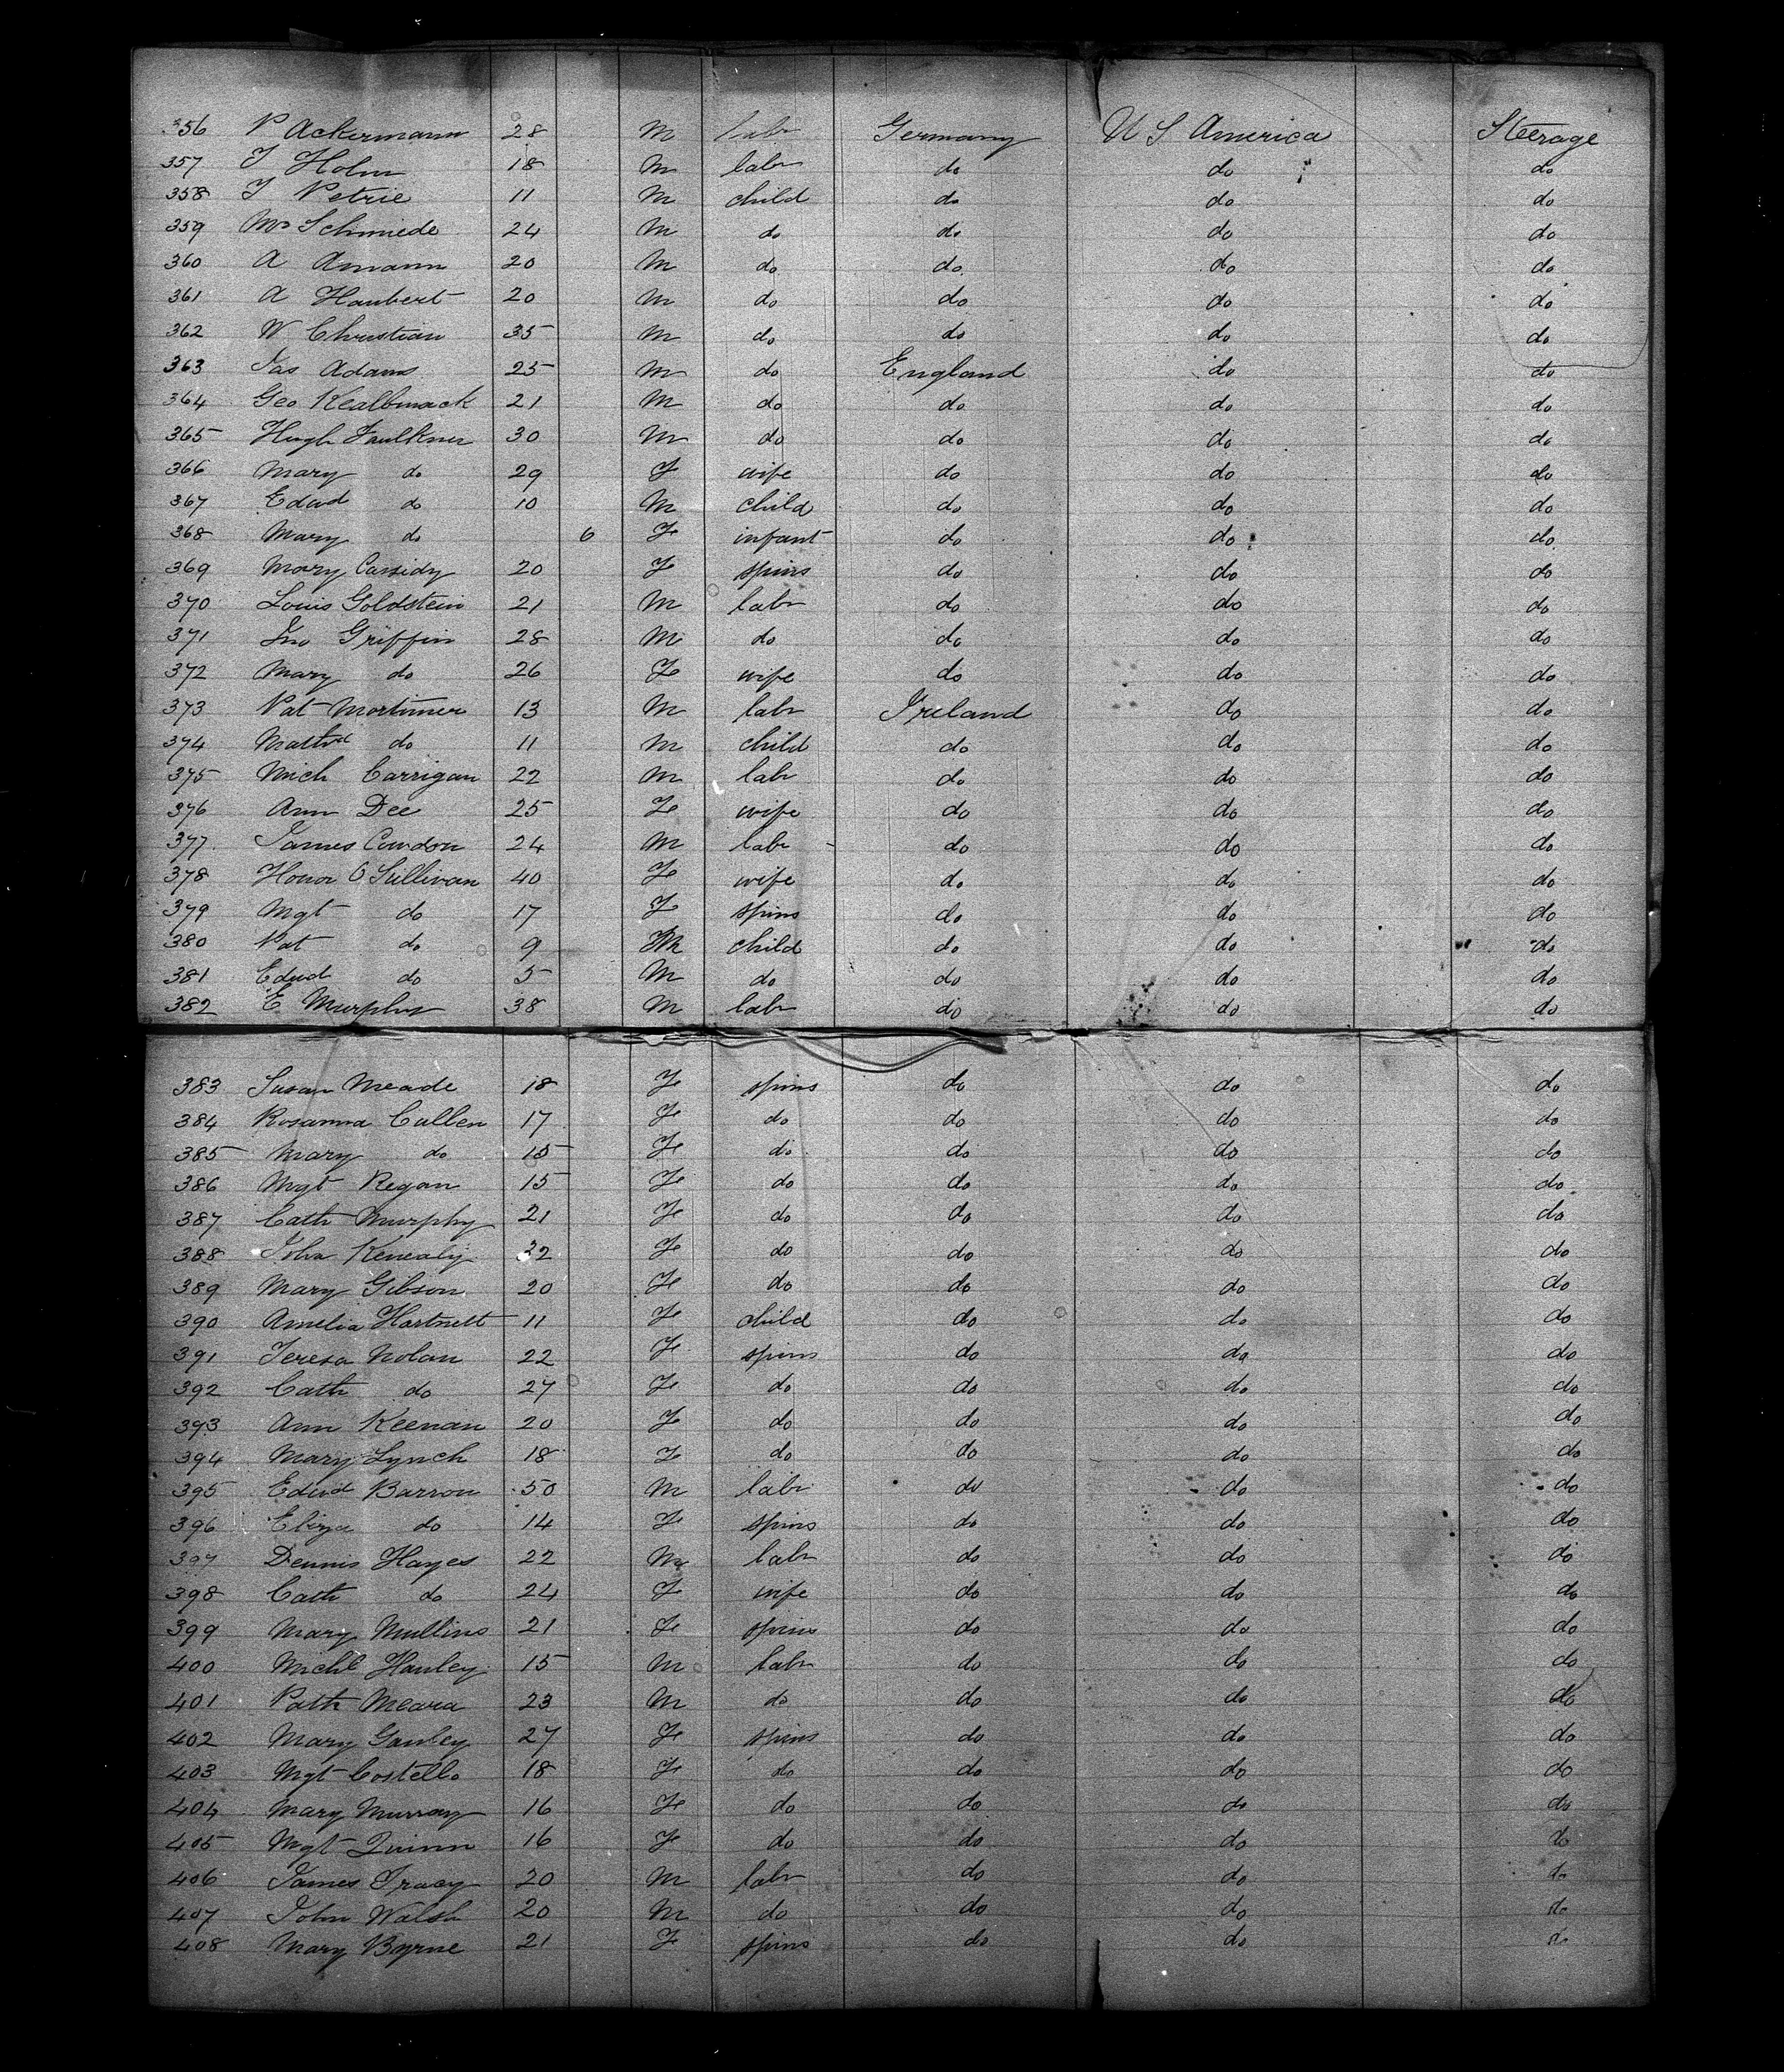 356 P Ackermann 28 M labr Germany U S America Steerage
357 J Holm 18 M labr do do do
358 J Petrie 11 M child do do do
359 Mr Schmiede 24 M do do do do
360 A Amann 20 M do do do do
361 A Haubert 20 M do do do do
362 W Christian 35 M do do do do
363 Jas Adams 25 M do England do do
364 Geo 21 M do do do do
365 Hugh Faulkner 30 M do do do do
366 Mary do 29 F wife do do do
367 Edwd do 10 M child do do do
368 Mary do 6 F infant do do do
369 Mary Cassidy 20 F spins do do do
370 Louis Goldstein 21 M labr do do do
371 Jno Griffin 28 M do do do do
372 Mary do 26 F wife do do do
373 Pat Mortimer 13 M labr Ireland do do
374 do 11 M child do do do
375 Mich Carrigan 22 M labr do do do
376 Ann Dee 25 F wife do do do
377 James Condon 24 M labr do do do
378 Honor O Sullivan 40 F wife do do do
379 Mgt do 17 F spins do do do
380 Pat do 9 M child do do do
381 Edwd do 5 M do do do do
382 E Murphy 38 M labr do do do
383 Susan Meade 18 F spins do do do
384 Rosanna Cullen 17 F do do do do
385 Mary do 15 F do do do do
386 Mgt Regan 15 F do do do do
387 Cath Murphy 21 F do do do do
388 Kenealy 32 F do do do do
389 Mary Gibson 20 F do do do do
390 Amelia Hartnett 11 F child do do do
391 Teresa Nolan 22 F spins do do do
392 Cath do 27 F do do do do
393 Ann Keenan 20 F do do do do
394 Mary Lynch 18 F do do do do
395 Edwd Barron 50 M labr do do do
396 Eliza do 14 F spins do do do
397 Dennis Hayes 22 M labr do do do
398 Cath do 24 F wife do do do
399 Mary Mullins 21 F spins do do do
400 Michl Hanley 15 M labr do do do
401 Patk Meara 23 M do do do do
402 Mary Ganley 27 F spins do do do
403 Mgt Costello 18 F do do do do
404 Mary Murray 16 F do do do do
405 Mgt Quinn 16 F do do do do
406 James Tracy 20 M labr do do do
407 John Walsh 20 M do do do do
408 Mary Byrne 21 F spins do do do